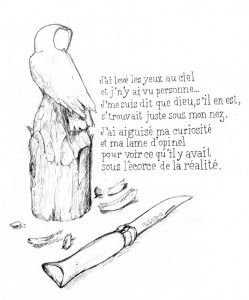 J'ai levé les yeux au ciel
et j'n'y ai vu personne...
J'me suis dit que dieu, s'il en est,
s'trouvait juste sous mon nez.
J'ai aiguisé ma curiosité
et ma lame d'opinel
pour voir ce qu'il y avait
sous l'écorce de la réalité.